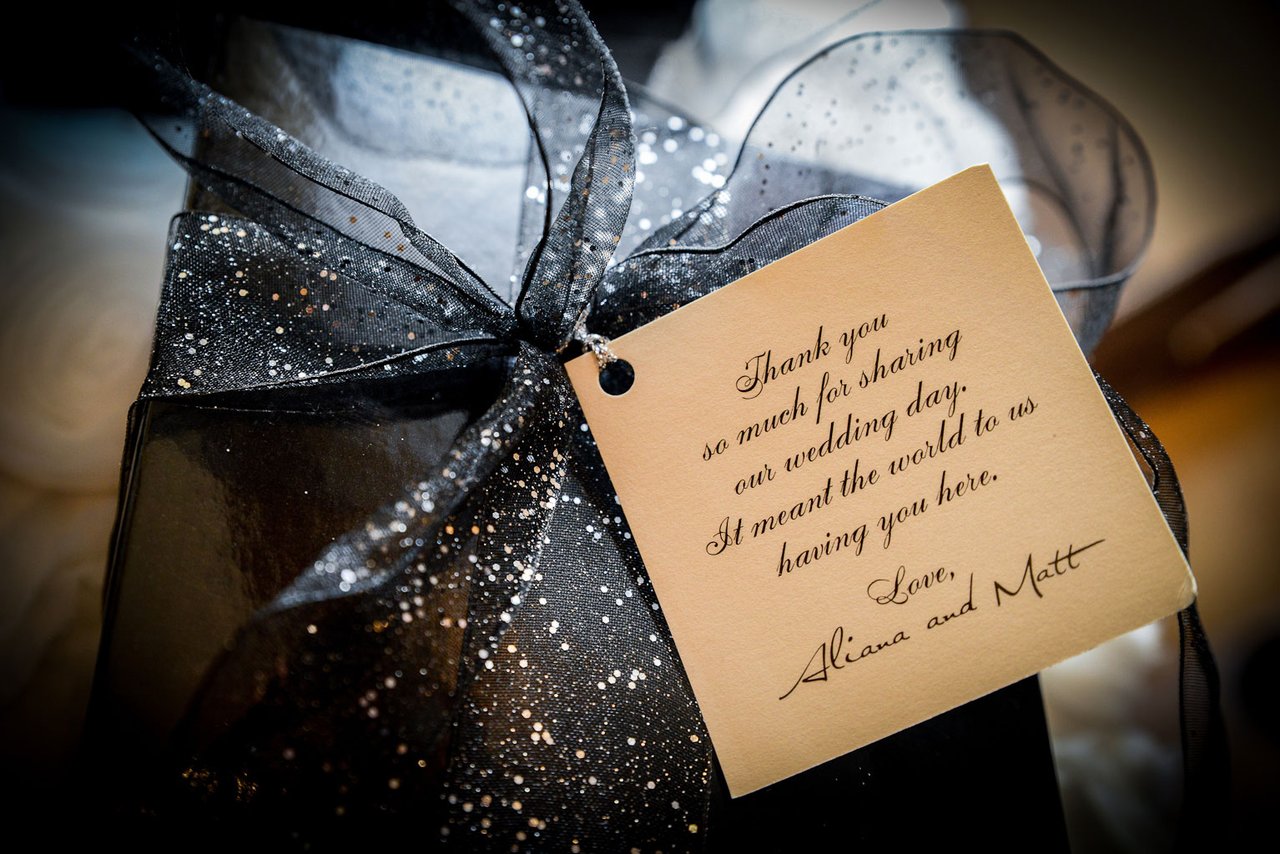 Thank you
so much for sharing
our wedding day.
It meant the world to us
having you here.
Love,
Aliana and Matt